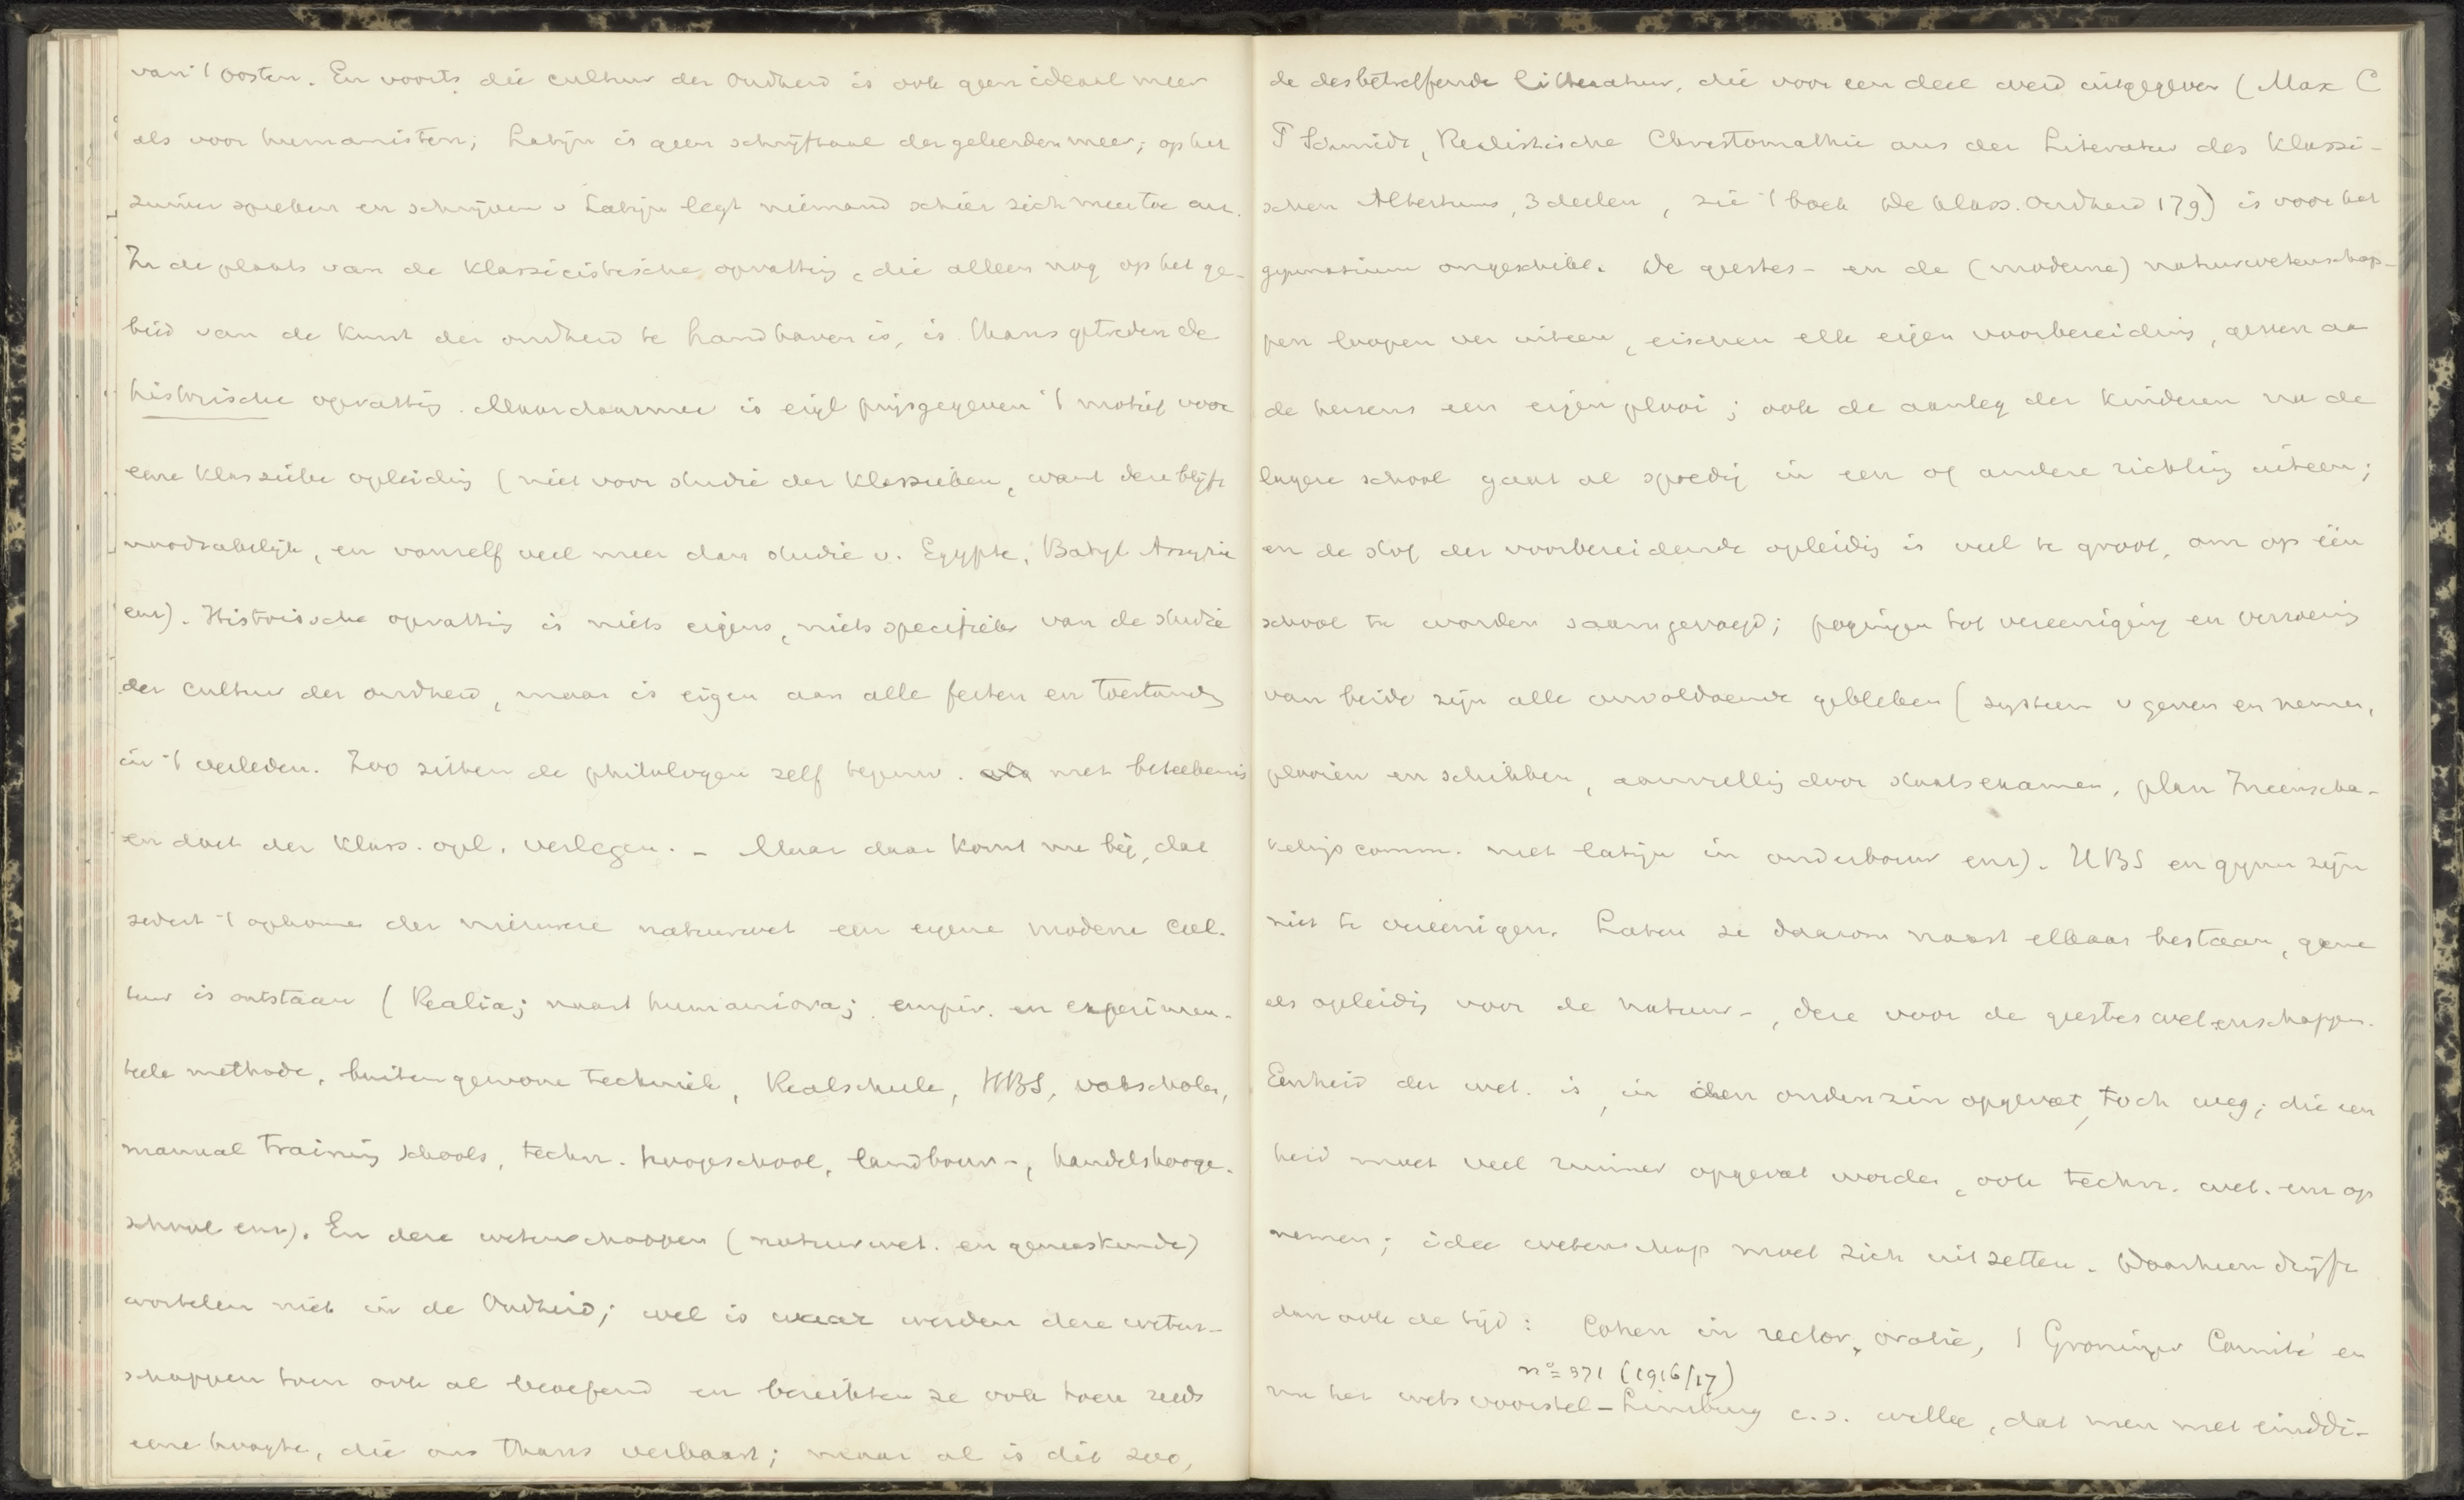 van 't oosten. En voorts die cultuur der Oudheid is ook geen ideaal meer
als voor humanisten; Latijn is geen schrijftaal der geleerden meer; op het
zuiver spreken en schrijven v Latijn legt niemand schier zich meer toe
In de plaats van de klassicistische opvatting, die alleen nog op het ge-
bied van de kunst der oudheid te handhaven is, is thans getreden de
historische opvatting. Maar daarmee is eigl prijsgegeven 't motief voor
eene klassieke opleiding (niet voor studie der klassieken, want deze blijft
noodzakelijk, en vanself veel meer dan studie v. Egypte, Babyl Assyrie
enz). Historische opvatting is niets eigens, niets specifieks van de studie
der cultuur der oudheid, maar is eigen aan alle feiten en toestanden
in 't verleden. Zoo zitten de philologen zelf tegenw. met beteekenis
en doel der klass. opl. verlegen. - Maar daar komt nu bij, dat
sedert 't opkomen der nieuwere natuurwet een eigene moderne cul-
tuur is ontstaan (Realia; naast humaniora; empir. en experimen-
teele methode, buitengewone techniek, Realschule, HBS, vakscholen,
manual training schools, techn. hoogeschool, landbouw-, handelshooge-
school enz). En deze wetenschappen (natuurwet. en geneeskunde)
wortelen niet in de Oudheid; wel is waar werden deze weten-
schappen toen ook al beoefend en bereikten ze ook toen reeds
eene hoogte, die ons thans verbaast; maar al is dit zoo,
de desbetreffende litteratuur, die voor een deel werd uitgegeven (Max C
P Schmidt, Realistische Chrestomathie aus der Literatur des klassi-
schen Altertums, 3 deelen, zie 't boek De klass. Oudheid 179) is voor het
gymnasium ongeschikt. De geestes- en de (moderne) natuurwetenschap-
pen loopen ver uiteen, eischen elk eigen voorbereiding, geven aa
de hersens een eigen plooi; ook de aanleg der kinderen na de
lagere school gaat al spoedig in een of andere richting uiteen;
en de stof der voorbereidende opleidig is veel te groot, om op één
school te worden saamgevoegd; pogingen tot vereeniging en verzoening
van beide zijn alle onvoldoende gebleken (systeem v geven en nemen,
plooien en schikken, aanvulling door staatsexamen, plan Ineenscha-
kelings comm. met latijn in onderbouw enz). HBS en gymn zijn
niet te vereenigen. Laten ze daarom naast elkaar bestaan, gene
als opleidig voor de natuur-, deze voor de geesteswetenschappen.
Eenheid der wet. is, in den ouden zin opgevat, toch weg; die een
heid moet veel ruimer opgevat worden, ook techn. wet. enz op
nemen; idee wetenschap moet zich uitzetten. Daarheen drijft
dan ook de tijd: Cohen in rector. oratie, 't Groninger Comité en
no 371 (1916/17)
nu het wetsvoorstel-Limburg c.s. willen, dat men met einddi-